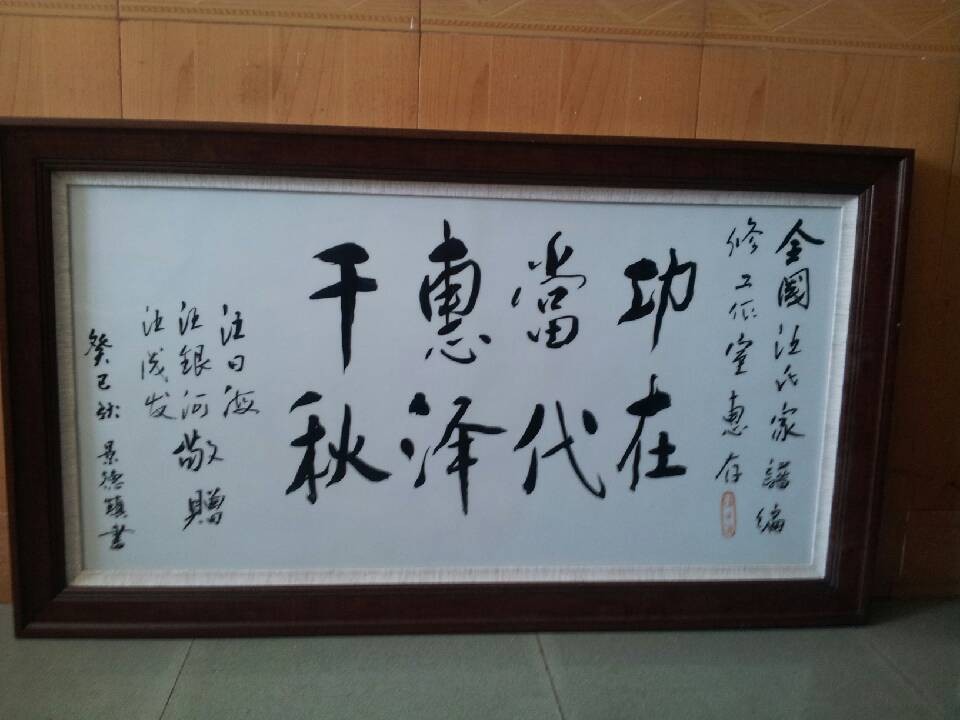 全國汪氏家譜編
修工作室惠存
功在
當代
惠澤
千秋
汪日海
汪銀河敬贈
汪成发
癸巳秋景德鎮書